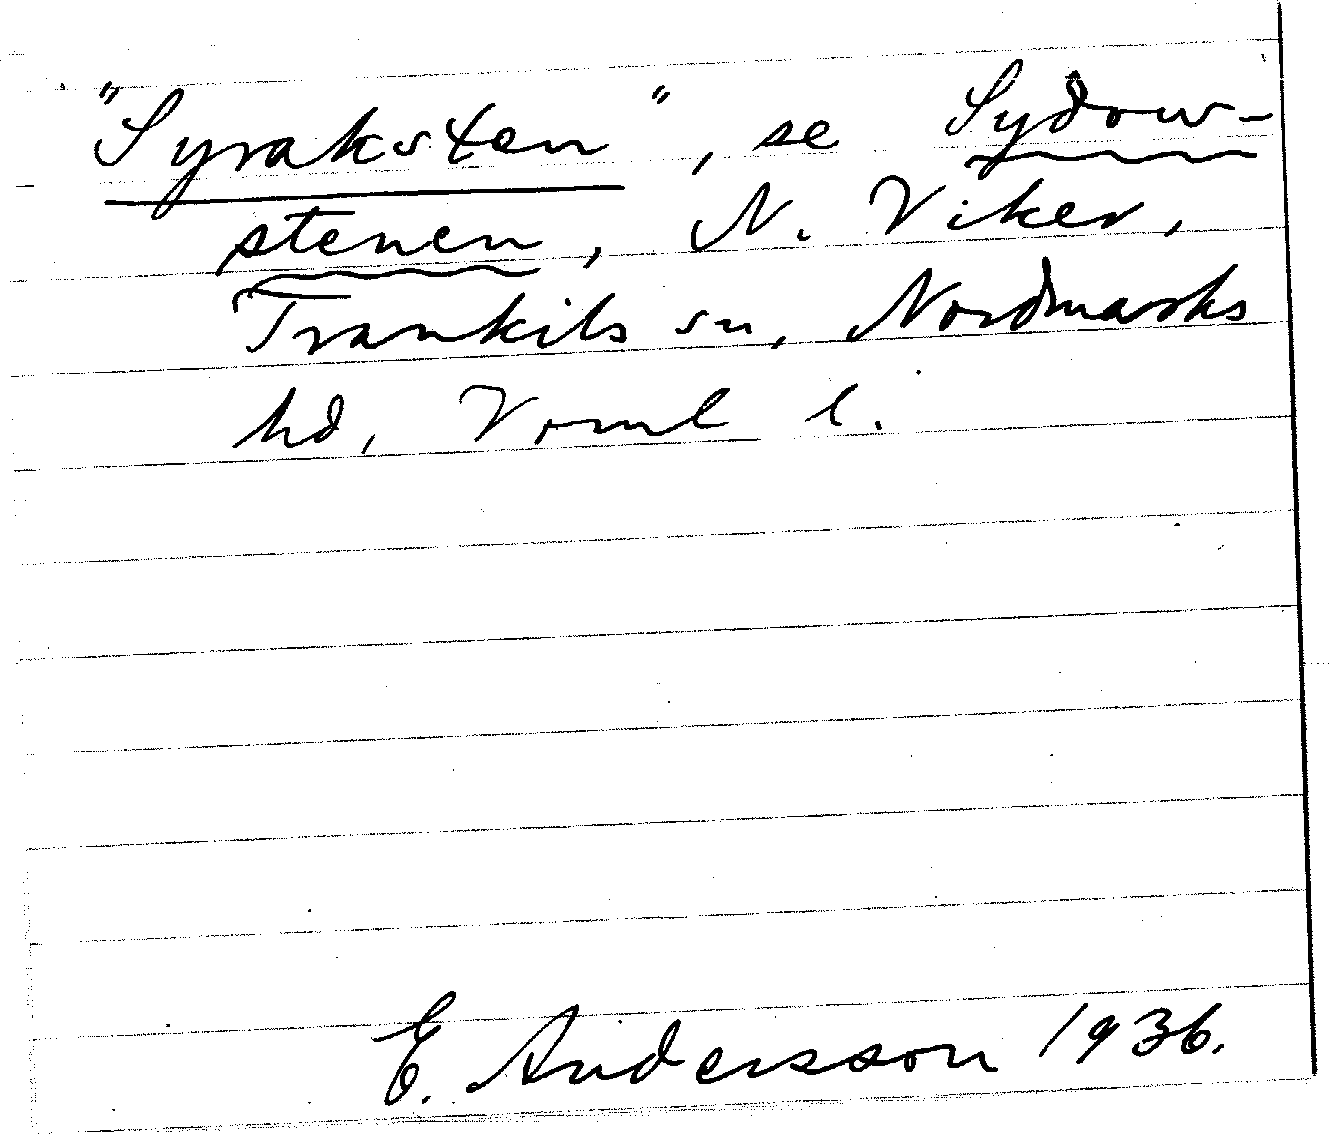 "Syraksten", se Sydow-
stenen, N. Viker,
Trankils sn, Nordmarks
hd, Vrml l.
E. Andersson 1936.